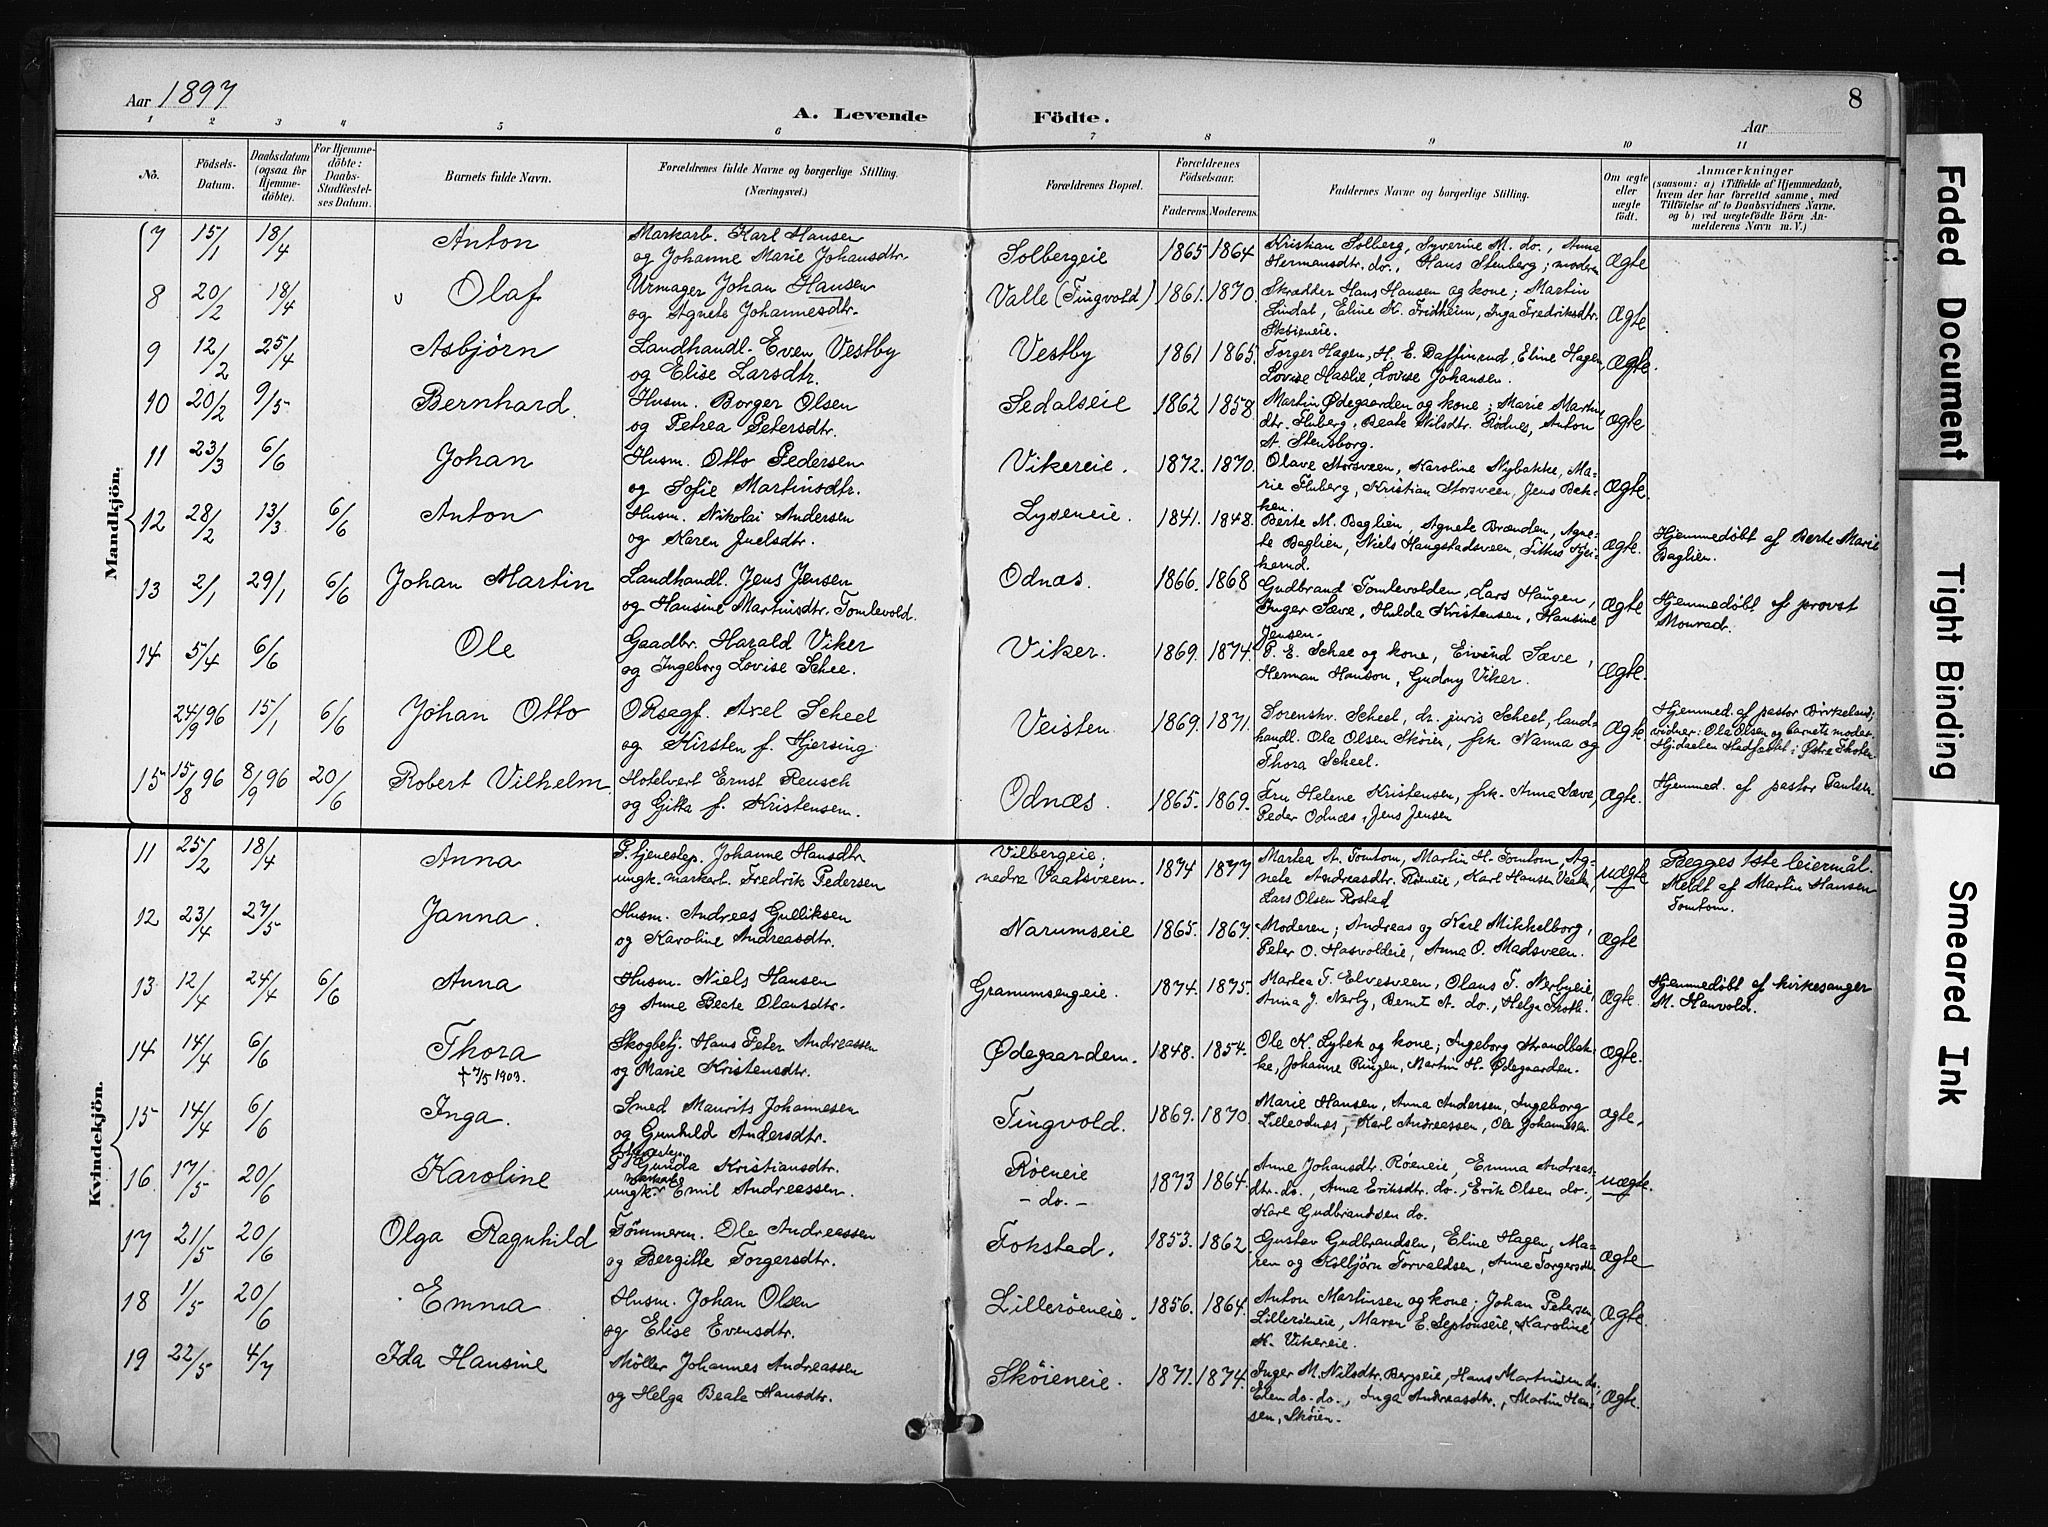 Aar 1897
A. Levende Födte.
Aar
8
1 2 3 4 5 6 7 8 9 10 11
No. Födsels-Datum. Daabsdatum (ogsaa for Hjemmedöbte). For Hjemmedöbte: Daabs-Stadfæstelses Datum. Barnets fulde Navn. Forældrenes fulde Navne og borgerlige Stilling. (Næringsvei.) Forældrenes Bopæl. Forældrenes Födselsaar. Faderens. Moderens. Faddernes Navne og borgerlige Stilling. Om ægte eller uægte födt. Anmærkninger
(saasom: a) i Tilfælde af Hjemmedaab, hvem der har forrettet samme, med Tilföielse af to Daabsvidners Navne, og b) ved uægtefödte Börn Anmelderens Navn m. V.)
Mandkjön.
7 15/1 18/4 Anton Markarb. Karl Hansen Solbergeie 1865 1864 Kristian Solberg, Syverine M. do., Anna ægte
og Johanne Marie Johansdtr. Hermansdtr. do., Hans Stenberg; moderen
8 20/2 18/4 Olaf Urmager Johan Hansen Valle (Tingvold) 1861. 1870. Skrædder Hans Hansen og kone; Martin ægte
og Agnete Johannesdtr. Lindal, Eline K. Fridheim, Inga Fredriksdtr.
Skøieneie.
9 12/2 25/4 Asbjörn Landhandl. Even Vestby Vestby 1861 1865. Torger Hagen, H. E. Daffinrud, Eline Hagen, ægte.
og Elise Larsdtr. Lovise Haslie, Lovise Johansen.
10 20/2 9/5 Bernhard. Husm. Borger Olsen Sedalseie 1862 1858 Martin Ødegaarden og kone; Marie Martins ægte
og Petrea Petersdtr. dtr. Fluberg, Beate Nilsdtr. Rödnes, Anton
A. Stensborg.
11 23/3 6/6 Johan Husm. Otto Pedersen Vikereie. 1872. 1870. Olave Storsveen, Karoline Nybakke, Ma- ægte.
og Sofie Martinsdtr. rie Fluberg, Kristian Storsveen, Jens Bek-
ken.
12 28/2 13/3 6/6 Anton Husm. Nikolai Andersen Lyseneie. 1841. 1848. Berte M. Baglien, Agnete Brænden, Agne- ægte. Hjemmedøbt af Berte Marie
og Karen Juelsdtr. te Baglien, Niels Haugstadsveen, Baglien.
13 2/1 29/1 6/6 Johan Martin Landhandl. Jens Jensen Odnæs. 1866. 1868 Gudbrand Tomlevolden, Lars Haugen, ægte Hjemmedøbt af provst
og Hansine Martinsdtr. Tomlevold. Inger Sæve, Hulda Kristensen, Hansine Monrad.
Jensen.
14 5/4 6/6 Ole Gaadbr. Harald Viker Viker. 1869. 1874. P. E. Schee og kone, Eivind Sæve, ægte.
og Ingeborg Lovise Schee. Herman Hanson, Gudny Viker.
24/9 96 15/1 6/6 Johan Otto ORsagf. Axel Scheel Veisten. 1869. 1871. Sorenskr. Scheel, dr. juris Scheel, land- ægte. Hjemmed. af pastor Birkeland;
og Kirsten f. Hjersing. handl. Ola Olsen Skøien, frk. Nanna og vidner: Ola Olsen og barnets moder.
Thora Scheel.
15 15/8 96 8/9 96 20/6 Robert Vilhelm. Hotelvert Ernst Reusch Odnæs. 1865. 1869. Fru Helene Kristensen, frk. Anna Sæve, ægte. Hjemmed. af pastor Paulsen
og Gitta f. Kristensen. Peder Odnæs, Jens Jensen
Kvindekjön.
11 25/2 18/4 Anna P. tjenestep. Johanne Hansdtr Vilbergeie; 1874 1877 Martea A. Tomtom, Martin H. Tomtom, Ag- uægte Begges 1ste leiermål.
ungk. markarb. Fredrik Pedersen nedre Vaatsveen. nete Andreasdtr. Røneie, Karl Hansen Meldt af Martin Hansen
Lars Olsen Rostad Tomtom.
12 23/4 27/5 Janna. Husm. Andreas Gulliksen Narumseie 1865. 1867. Moderen; Andreas og Karl Mikkelborg, ægte
og Karoline Andreasdtr. Peter O. Hasvoldeie, Anna O. Madsveen.
13 12/4 24/4 6/6 Anna Husm. Niels Hansen Granumsengeie. 1874. 1875. Martea T. Elvesveen, Olaus T. Nerbyeie, ægte. Hjemmedøbt af kirkesanger
og Anne Beate Olausdtr. Anna J. Nerby, Bernt A. do., Helga M. Hanvold.
14 14/4 6/6 Thora Skogbetj. Hans Peter Andreassen Ødegaarden. 1848. 1854. Ole K. Lybek og kone; Ingeborg Strandbak- ægte.
† 7/5 1903. og Marie Kristensdtr. ke, Johanne Ringen, Martin H. Ødegaarden.
15 14/4 6/6 Inga. Smed Maurits Johannesen Tingvold. 1869. 1870 Marie Hansen, Anna Andersen, Ingeborg ægte.
og Gunhild Andersdtr. Lilleodnæs, Karl Andreassen, Ole Johannesen.
16 17/5 20/6 Karoline P. Gunda Kristiansdtr. Røeneie 1873 1864. Anne Johansdtr. Røeneie, Emma Andreas- uægte.
ungk. Emil Andreassen. - do. - dtr. do., Anna Eriksdtr. do., Erik Olsen do.,
Karl Gudbrandsen do.
17 21/5 20/6 Olga Ragnhild Tömmerm. Ole Andreassen Fokstad. 1853. 1862. Gustav Gudbrandsen, Eline Hagen, Ma- ægte
og Bergitte Torgersdtr. ren og Kolbjørn Torvaldsen, Anne Torgersdtr.
18 1/5 20/6 Emma Husm. Johan Olsen Lilleröeneie. 1856. 1864. Anton Martinsen og kone; Johan Petersen ægte.
og Elise Evensdtr. Lilleröeneie, Maren E. Septonseie, Karoline
K. Vikereie.
19 22/5 4/7 Ida Hansine Møller Johannes Andreassen Skøieneie. 1871. 1874. Inger M. Nilsdtr. Bergseie, Hans Martinsen do. ægte.
og Helga Beate Hansdtr. Elen do. do., Inga Andreasdtr., Martin Han-
sen, Skøien.
Faded Document
Tight Binding
Smeared Ink